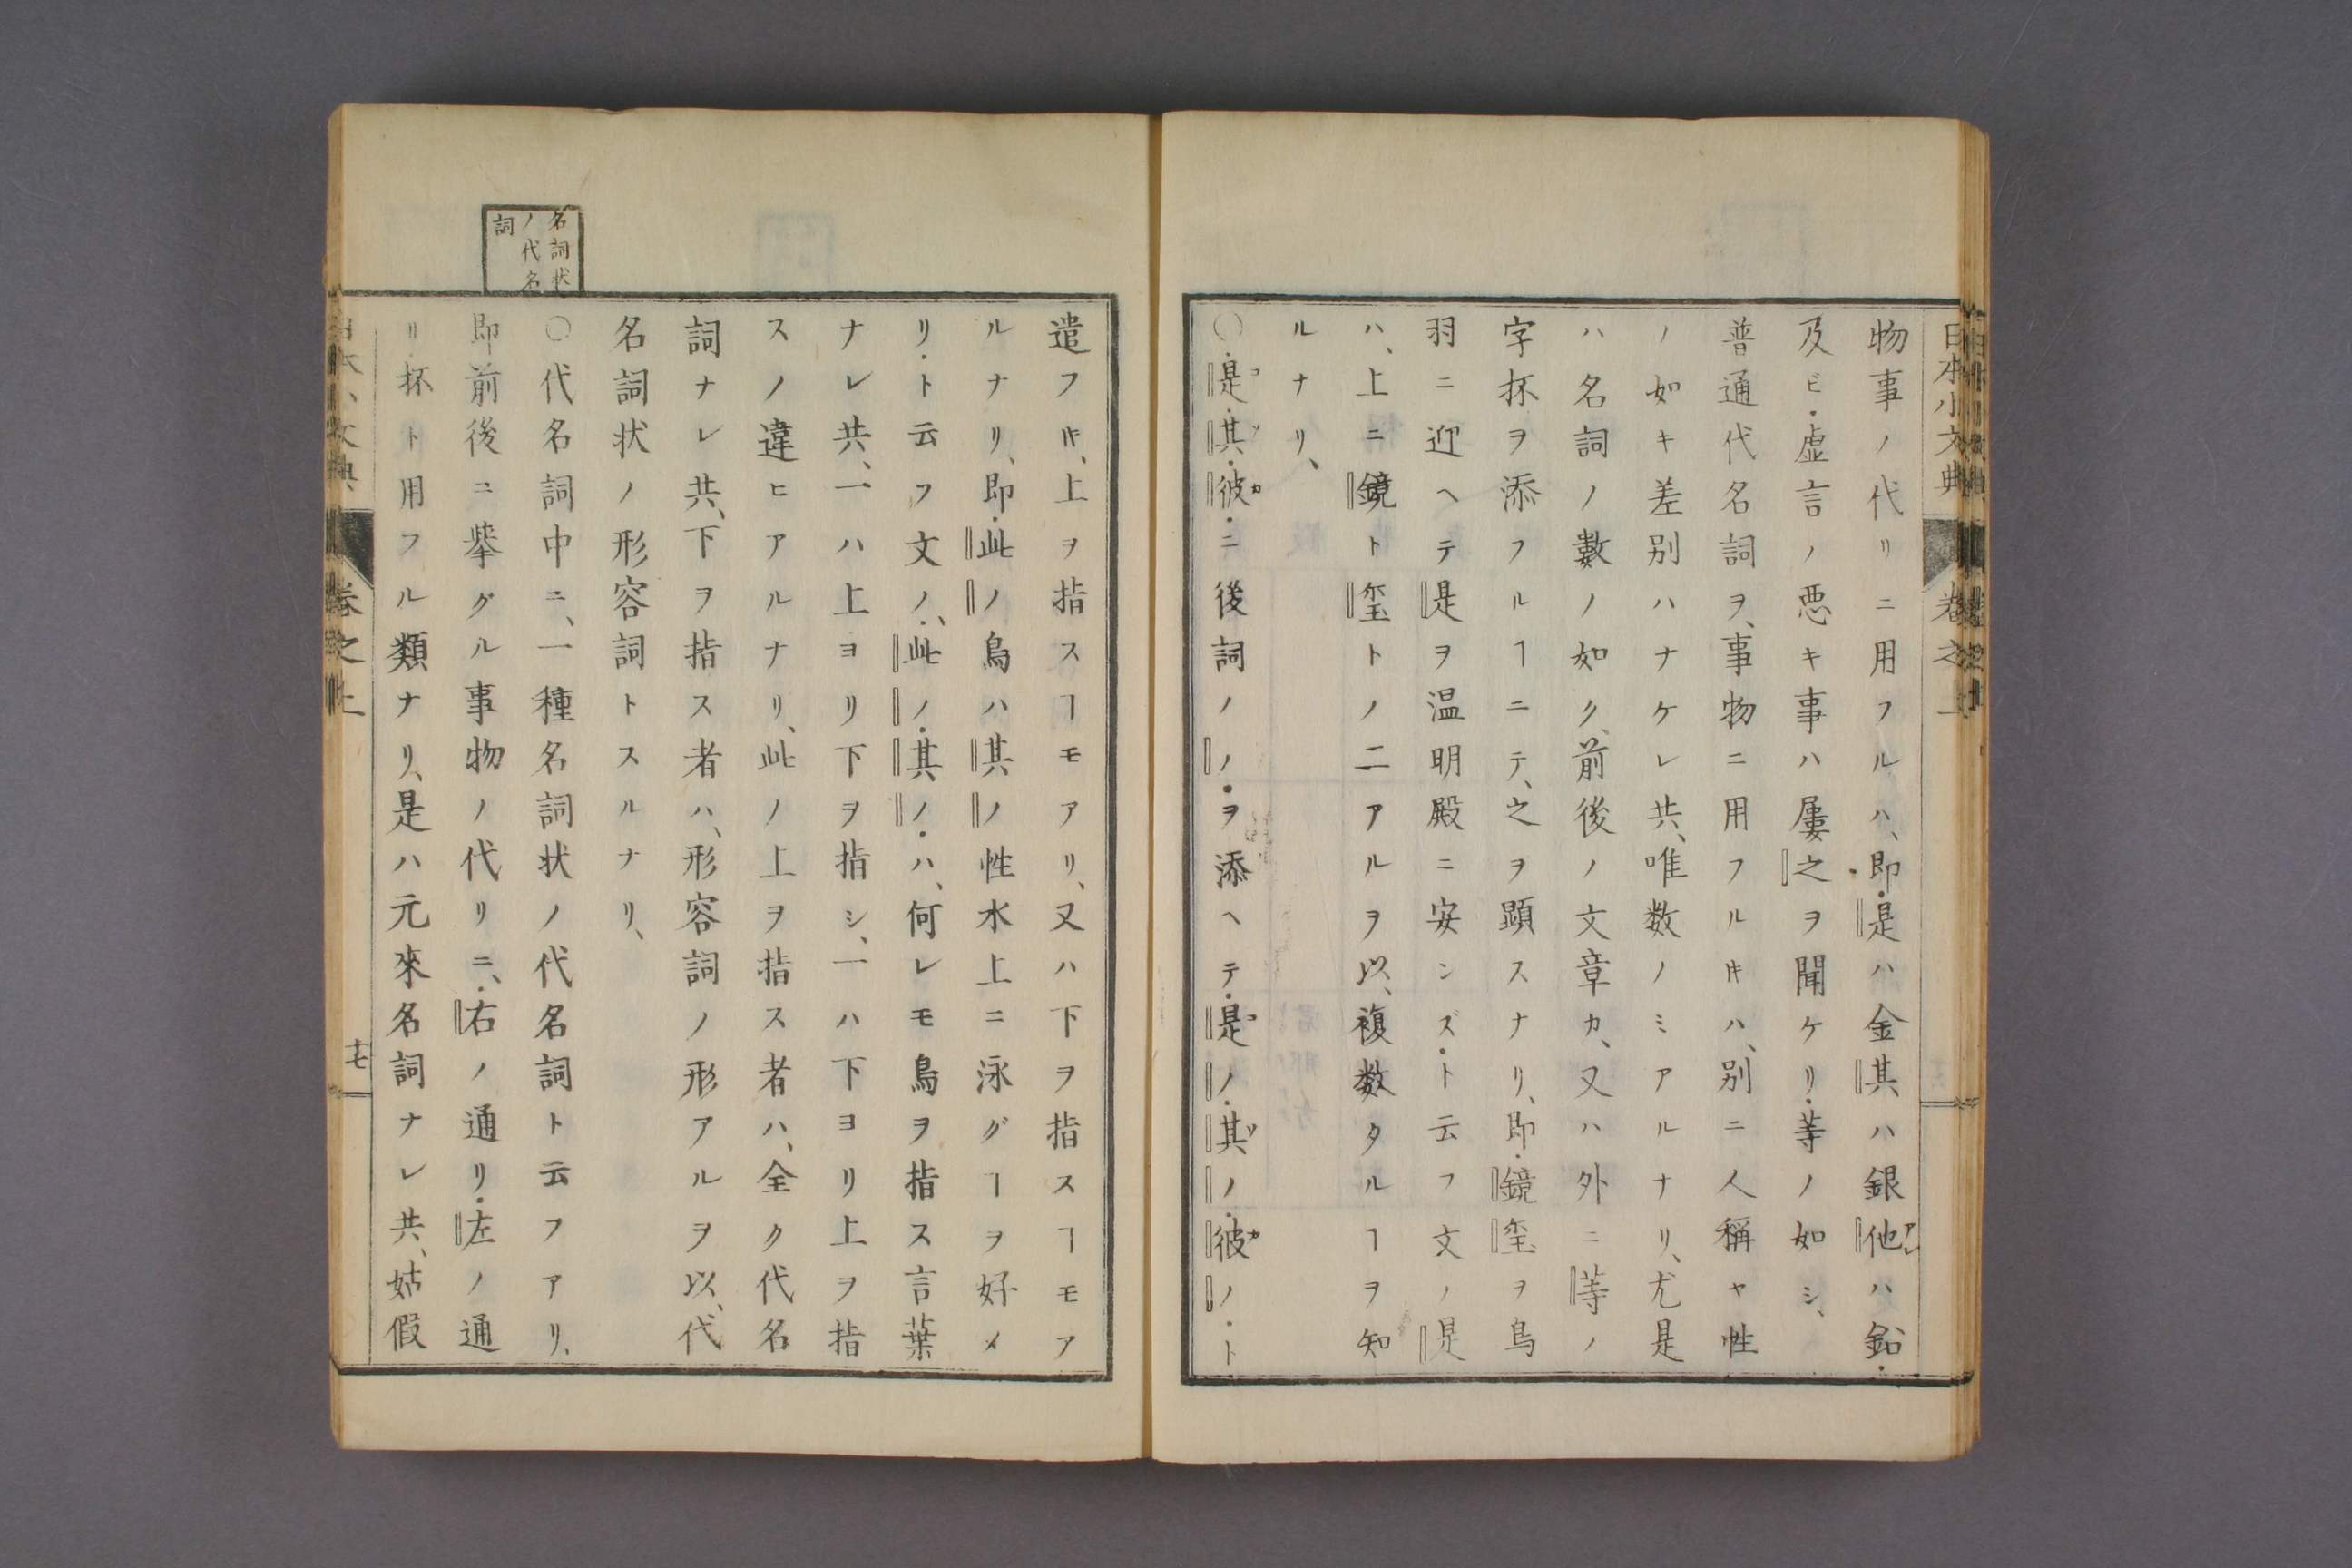 日本小文典 卷之上
物事ノ代リニ用フルハ、即・是ハ金其ハ銀他ハ鉛・
及ビ・虚言ノ悪キ事ハ屢之ヲ聞ケリ・等ノ如シ、
普通代名詞ヲ、事物ニ用フルキハ、別ニ人稱ヤ性
ノ如キ差別ハナケレ共、唯数ノミアルナリ、尤是
ハ名詞ノ數ノ如ク、前後ノ文章カ、又ハ外ニ等ノ
字抔ヲ添フルヿニテ、之ヲ顕スナリ、即・鏡璽ヲ鳥
羽ニ迎ヘテ是ヲ温明殿ニ安ンズ・ト云フ文ノ是
ハ、上ニ鏡ト璽トノ二アルヲ以、複数タルヿヲ知
ルナリ、
〇・是・其・彼・ニ後詞ノノ・ヲ添ヘテ・是ノ・其ノ・彼ノ・ト
遣フキ、上ヲ指スヿモアリ、又ハ下ヲ指スヿモア
ルナリ、即・此ノ鳥ハ其ノ性水上ニ泳グヿヲ好メ
リ・ト云フ文ノ、・此ノ・其ノ・ハ、何レモ鳥ヲ指ス言葉
ナレ共、一ハ上ヨリ下ヲ指シ、一ハ下ヨリ上ヲ指
スノ違ヒアルナリ、此ノ上ヲ指ス者ハ、全ク代名
詞ナレ共、下ヲ指ス者ハ、形容詞ノ形アルヲ以、代
名詞状ノ形容詞トスルナリ、
名詞状
ノ代名
詞
〇代名詞中ニ、一種名詞状ノ代名詞ト云フアリ、
即前後ニ挙グル事物ノ代リニ、・右ノ通リ・左ノ通
リ・抔ト用フル類ナリ、是ハ元來名詞ナレ共、姑假
日本小文典 卷之上 十七